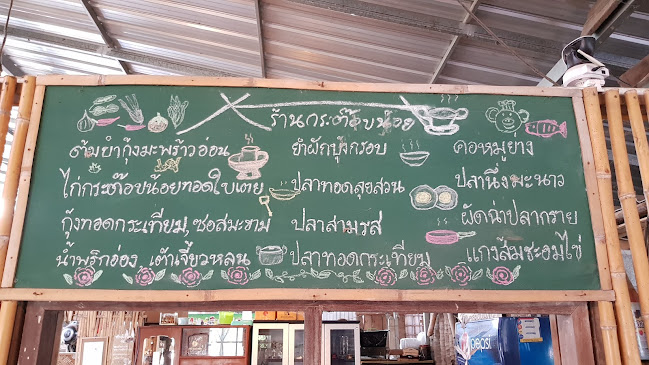 ร้านกระต๊อบน้อย
ต้มยำกุ้งมะพร้าวอ่อน ยำผักบุ้งกรอบ คอหมูย่าง
ไก่กระต๊อบน้อยทอดใบเตย ปลาทอดลุยสวน ปลานึ่งมะนาว
กุ้งทอดกระเทียม,ซอสมะขาม ปลาสามรส ผัดฉ่าปลากราย
น้ำพริกอ่อง เต้าเจี้ยวหลน ปลาทอดกระเทียม แกงส้มชะอมไข่
pepsi